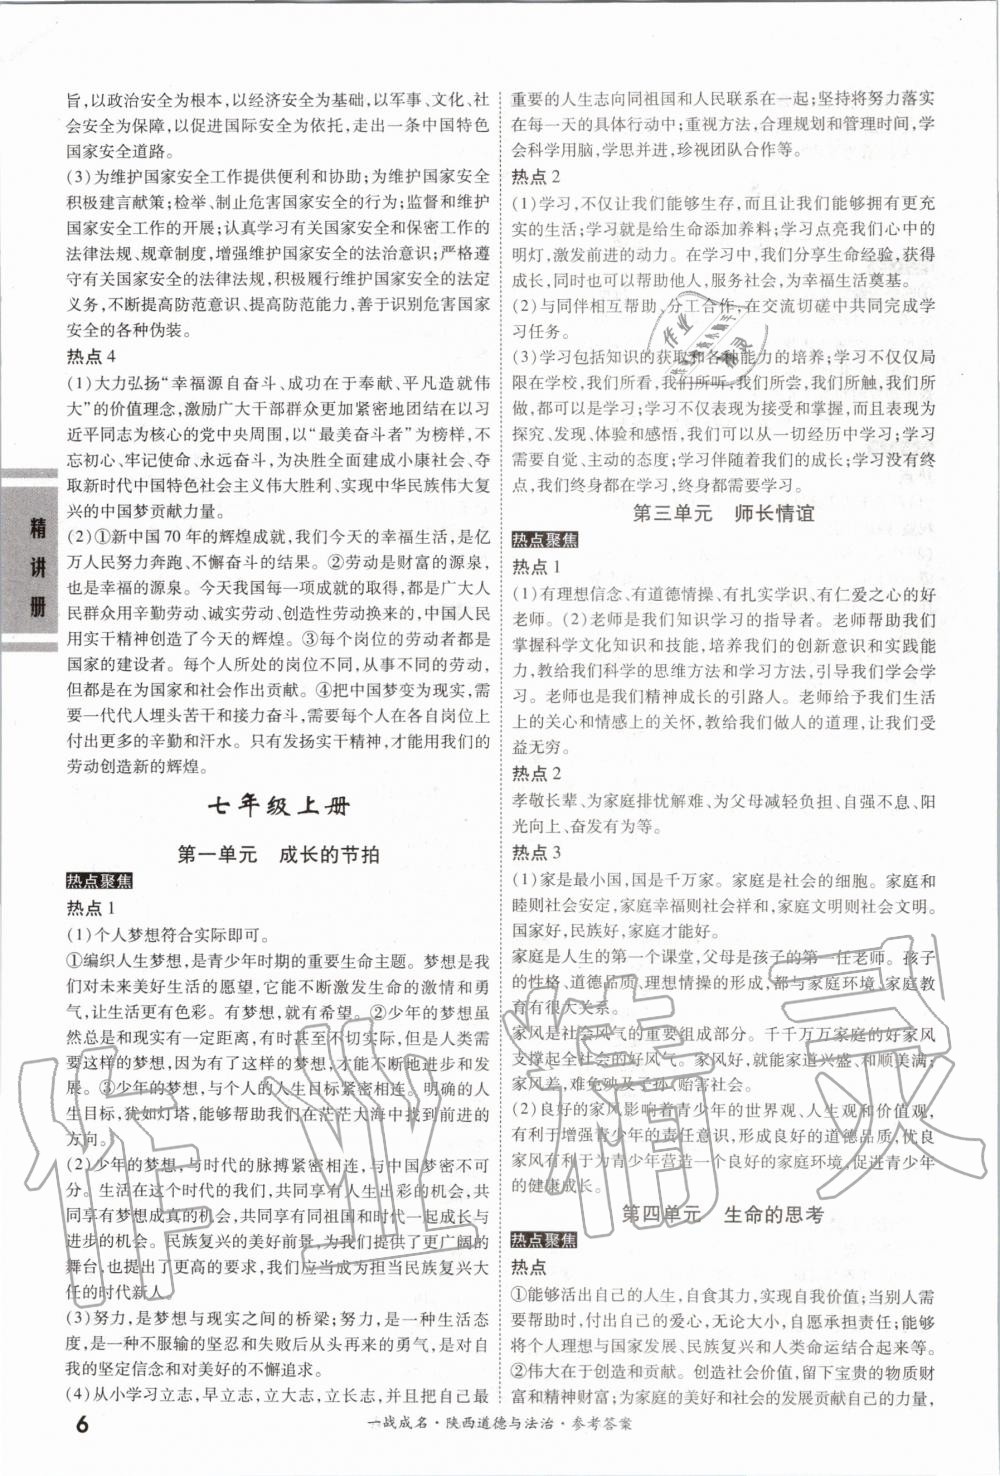 旨,以政治安全为根本,以经济安全为基础,以军事、文化、社
会安全为保障,以促进国际安全为依托,走出一条中国特色
国家安全道路。
(3)为维护国家安全工作提供便利和协助;为维护国家安全
积极建言献策;检举、制止危害国家安全的行为;监督和维护
国家安全工作的开展;认真学习有关国家安全和保密工作的
法律法规、规章制度,增强维护国家安全的法治意识;严格遵
守有关国家安全的法律法规,积极履行维护国家安全的法定
义务,不断提高防范意识、提高防范能力,善于识别危害国家
安全的各种伪装。
热点4
(1)大力弘扬“幸福源自奋斗、成功在于奉献、平凡造就伟
大”的价值理念,激励广大干部群众更加紧密地团结在以习
近平同志为核心的党中央周围,以“最美奋斗者”为榜样,不
忘初心、牢记使命、永远奋斗,为决胜全面建成小康社会、夺
取新时代中国特色社会主义伟大胜利、实现中华民族伟大复
兴的中国梦贡献力量。
(2)①新中国70年的辉煌成就,我们今天的幸福生活,是亿
万人民努力奔跑、不懈奋斗的结果。②劳动是财富的源泉,
也是幸福的源泉。今天我国每一项成就的取得,都是广大人
民群众用辛勤劳动、诚实劳动、创造性劳动换来的,中国人民
用实干精神创造了今天的辉煌。③每个岗位的劳动者都是
国家的建设者。每个人所处的岗位不同,从事不同的劳动,
但都是在为国家和社会作出贡献。④把中国梦变为现实,需
要一代代人埋头苦干和接力奋斗,需要每个人在各自岗位上
付出更多的辛勤和汗水。只有发扬实干精神,才能用我们的
劳动创造新的辉煌。
七年级上册
第一单元 成长的节拍
热点聚焦
热点1
(1)个人梦想符合实际即可。
①编织人生梦想,是青少年时期的重要生命主题。梦想是我
们对未来美好生活的愿望,它能不断激发生命的激情和勇
气,让生活更有色彩。有梦想,就有希望。②少年的梦想虽
然总是和现实有一定距离,有时甚至不切实际,但是人类需
要这样的梦想,因为有了这样的梦想,才能不断地进步和发
展。③少年的梦想,与个人的人生目标紧密相连。明确的人
生目标,犹如灯塔,能够帮助我们在茫茫大海中找到前进的
方向。
(2)少年的梦想,与时代的脉搏紧密相连,与中国梦密不可
分。生活在这个时代的我们,共同享有人生出彩的机会,共
同享有梦想成真的机会,共同享有同祖国和时代一起成长与
进步的机会。民族复兴的美好前景,为我们提供了更广阔的
舞台,也提出了更高的要求,我们应当成为担当民族复兴大
任的时代新人。
(3)努力,是梦想与现实之间的桥梁;努力,是一种生活态
度,是一种不服输的坚忍和失败后从头再来的勇气,是对自
我的坚定信念和对美好的不懈追求。
(4)从小学习立志,早立志,立大志,立长志,并且把自己最
重要的人生志向同祖国和人民联系在一起;坚持将努力落实
在每一天的具体行动中;重视方法,合理规划和管理时间,学
会科学用脑,学思并进,珍视团队合作等。
热点2
(1)学习,不仅让我们能够生存,而且可以让我们拥有更充
实的生活;学习就是给生命添加养料;学习点亮我们心中的
明灯,激发前进的动力。在学习中,我们分享生命经验,获得
成长,同时也可以帮助他人,服务社会,为幸福生活奠基。
(2)与同伴相互帮助、分工合作,在交流切磋中共同完成学
习任务。
(3)学习包括知识的获取和各种能力的培养;学习不仅仅局
限在学校,我们所看,我们所听,我们所尝,我们所触,我们所
做,都可以是学习;学习不仅表现为接受和掌握,而且表现为
探究、发现、体验和感悟,我们可以从一切经历中学习;学习
需要自觉、主动的态度;学习伴随着我们的成长;学习没有终
点,我们终身都在学习,终身都需要学习。
第三单元 师长情谊
热点聚焦
热点1
(1)有理想信念、有道德情操、有扎实学识、有仁爱之心的好
老师。(2)老师是我们知识学习的指导者。老师帮助我们
掌握科学文化知识和技能,培养我们的创新意识和实践能
力,教给我们科学的思维方法和学习方法,引导我们学会学
习。老师也是我们精神成长的引路人。老师给予我们生活
上的关心和情感上的关怀,教给我们做人的道理,让我们受
益无穷。
热点2
孝敬长辈、为家庭排忧解难、为父母减轻负担、自强不息、阳
光向上、奋发有为等。
热点3
(1)家是最小国,国是千万家。家庭是社会的细胞。家庭和
睦则社会安定,家庭幸福则社会祥和,家庭文明则社会文明。
国家好,民族好,家庭才能好。
家庭是人生的第一个课堂,父母是孩子的第一任老师。孩子
的性格、道德品质、理想情操的形成,都与家庭环境、家庭教
育有很大关系。
家风是社会风气的重要组成部分。千千万万家庭的好家风
支撑起全社会的好风气。家风好,就能家道兴盛、和顺美满;
家风差,难免殃及子孙、贻害社会。
(2)良好的家风影响着青少年的世界观、人生观和价值观,
有利于增强青少年的责任意识,形成良好的道德品质,优良
家风有利于为青少年营造一个良好的家庭环境,促进青少年
的健康成长。
第四单元 生命的思考
热点聚焦
热点
①能够活出自己的人生,自食其力,实现自我价值;当别人需
要帮助时,付出自己的爱心,无论大小,自愿承担责任;能够
将个人理想与国家发展、民族复兴和人类命运结合起来等。
②伟大在于创造和贡献。创造社会价值,留下宝贵的物质财
富和精神财富;为家庭的美好和社会的发展贡献自己的力量,
精讲册
6
一战成名·陕西道德与法治·参考答案
作业精灵